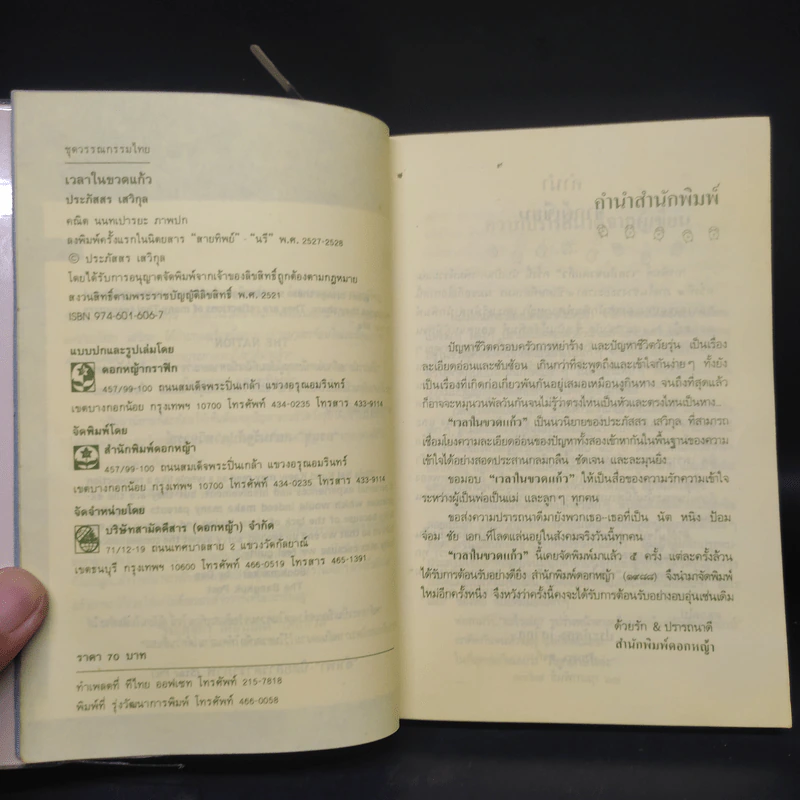 ชุดวรรณกรรมไทย
เวลาในขวดแก้ว
ประภัสสร เสวิกุล
คณิต นนทเปารยะ ภาพปก
ลงพิมพ์ครั้งแรกในนิตยสาร "สายทิพย์" - "นรี" พ.ศ. 2527-2528
© ประภัสสร เสวิกุล
โดยได้รับการอนุญาตจัดพิมพ์จากเจ้าของลิขสิทธิ์ถูกต้องตามกฎหมาย
สงวนสิทธิ์ตามพระราชบัญญัติลิขสิทธิ์ พ.ศ. 2521
ISBN 974-601-606-7
แบบปกและรูปเล่มโดย
ดอกหญ้ากราฟิก
457/99-100 ถนนสมเด็จพระปิ่นเกล้า แขวงอรุณอมรินทร์
เขตบางกอกน้อย กรุงเทพฯ 10700 โทรศัพท์ 434-0235 โทรสาร 433-9114
จัดพิมพ์โดย
สำนักพิมพ์ดอกหญ้า
457/99-100 ถนนสมเด็จพระปิ่นเกล้า แขวงอรุณอมรินทร์
เขตบางกอกน้อย กรุงเทพฯ 10700 โทรศัพท์ 434-0235 โทรสาร 433-9114
จัดจำหน่ายโดย
บริษัทสามัคคีสาร (ดอกหญ้า) จำกัด
71/12-19 ถนนเทศบาลสาย 2 แขวงวัดกัลยาณ์
เขตธนบุรี กรุงเทพฯ 10600 โทรศัพท์ 466-0519 โทรสาร 465-1391
ราคา 70 บาท
ทำเพลตที่ ทีไทย ออฟเซท โทรศัพท์ 215-7818
พิมพ์ที่ รุ่งวัฒนาการพิมพ์ โทรศัพท์ 466-0058
คำนำสำนักพิมพ์
ปัญหาชีวิตครอบครัวการหย่าร้าง และปัญหาชีวิตวัยรุ่น เป็นเรื่อง
ละเอียดอ่อนและซับซ้อน เกินกว่าที่จะพูดถึงและเข้าใจกันง่ายๆ ทั้งยัง
เป็นเรื่องที่เกิดก่อเกี่ยวพันกันอยู่เสมอเหมือนงูกินหาง จนถึงที่สุดแล้ว
ก็อาจจะหมุนวนพัลวันกันจนไม่รู้ว่าตรงไหนเป็นหัวและตรงไหนเป็นหาง...
"เวลาในขวดแก้ว" เป็นนวนิยายของประภัสสร เสวิกุล ที่สามารถ
เชื่อมโยงความละเอียดอ่อนของปัญหาทั้งสองเข้าหากันในพื้นฐานของความ
เข้าใจได้อย่างสอดประสานกลมกลืน ชัดเจน และละมุนยิ่ง
ขอมอบ "เวลาในขวดแก้ว" ให้เป็นสื่อของความรักความเข้าใจ
ระหว่างผู้เป็นพ่อเป็นแม่ และลูกๆ ทุกคน
ขอส่งความปรารถนาดีมายังพวกเธอ-เธอที่เป็น นัต หนิง ป้อม
จ๋อม ชัย เอก..ที่โลดแล่นอยู่ในสังคมจริงวันนี้ทุกคน
"เวลาในขวดแก้ว" นี้เคยจัดพิมพ์มาแล้ว ๕ ครั้ง แต่ละครั้งล้วน
ได้รับการต้อนรับอย่างดียิ่ง สำนักพิมพ์ดอกหญ้า (๑๙๘๘) จึงนำมาจัดพิมพ์
ใหม่อีกครั้งหนึ่ง จึงหวังว่าครั้งนี้คงจะได้รับการต้อนรับอย่างอบอุ่นเช่นเดิม
ด้วยรัก & ปรารถนาดี
สำนักพิมพ์ดอกหญ้า